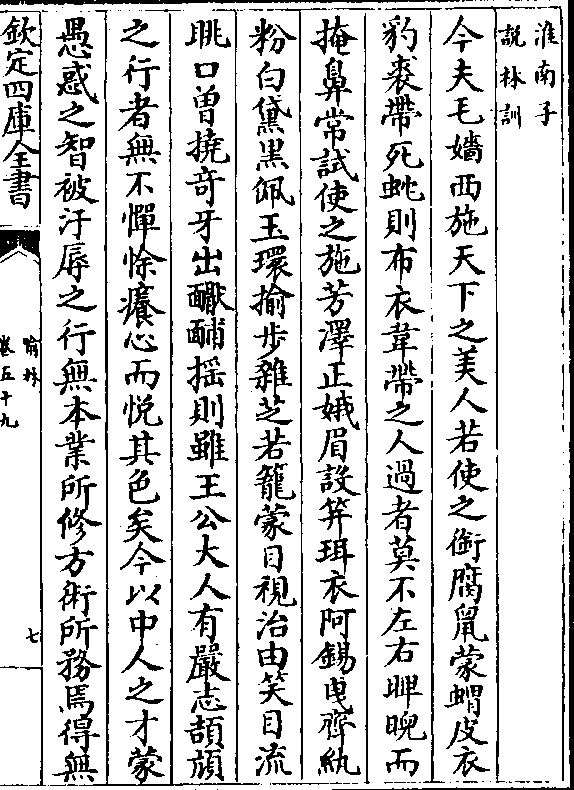 淮南子
說林訓
今夫毛嬙西施天下之美人若使之銜腐鼠蒙蝟皮衣
豹裘帶死虵則布衣韋帶之人過者莫不左右睥睨而
掩鼻常試使之施芳澤正娥眉設笄珥衣阿錫曳齊紈
粉白黛黒佩玉環揄步雜芝若籠蒙目視治由笑目流
眺口曽撓竒牙出䤘酺揺則雖王公大人有嚴志頡頏
之行者無不憚悇癢心而悦其色矣今以中人之才蒙
愚惑之智被汙辱之行無本業所修方術所務焉得無
欽定四庫全書
喻林
卷五十九
七